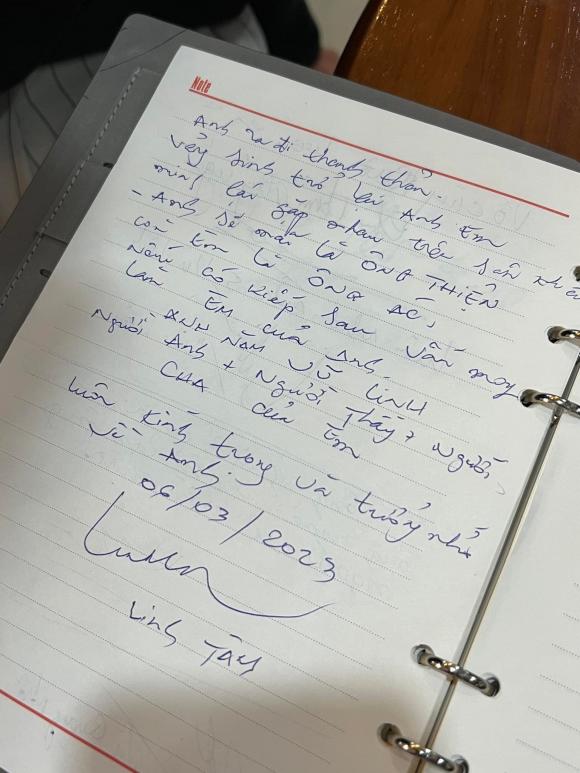 Note
Anh ra đi thanh thản.
Vãng sinh trở lại Anh Em
mình lại gặp nhau trên sân khấu
- Anh sẽ mãi là ÔNG THIỆN
còn Em là ÔNG ÁC,
Nếu có kiếp sau vẫn mong
làm EM của Anh.
ANH NĂM VŨ LINH
Người Anh + Người Thầy + Người
CHA của Em
Luôn kính trọng và tưởng nhớ
về Anh.
06/03/2023
Linh Tâm